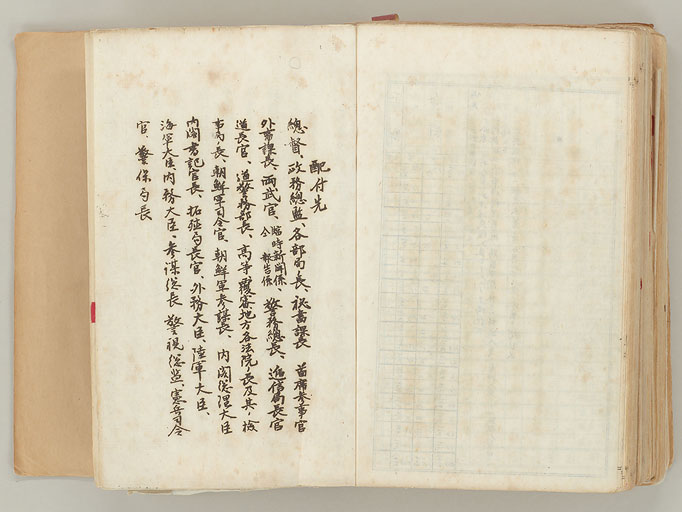 配付先
總督、政務總監、各部局長、秘書課長、首席参事官
外事課長、両武官、臨時新聞係、仝報告係、警務總長、逓信局長官
道長官、道警務部長、高等覆審地方各法院ノ長及其ノ檢
事局長、朝鮮軍司令官、朝鮮軍参謀長、内閣総理大臣
内閣書記官長、拓殖局長官、外務大臣、陸軍大臣、
海軍大臣、内務大臣、参謀総長、警視総監、憲兵司令
官、警保局長